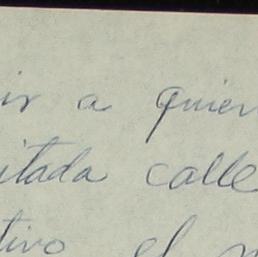 ir a quier
itada calle
tivo el